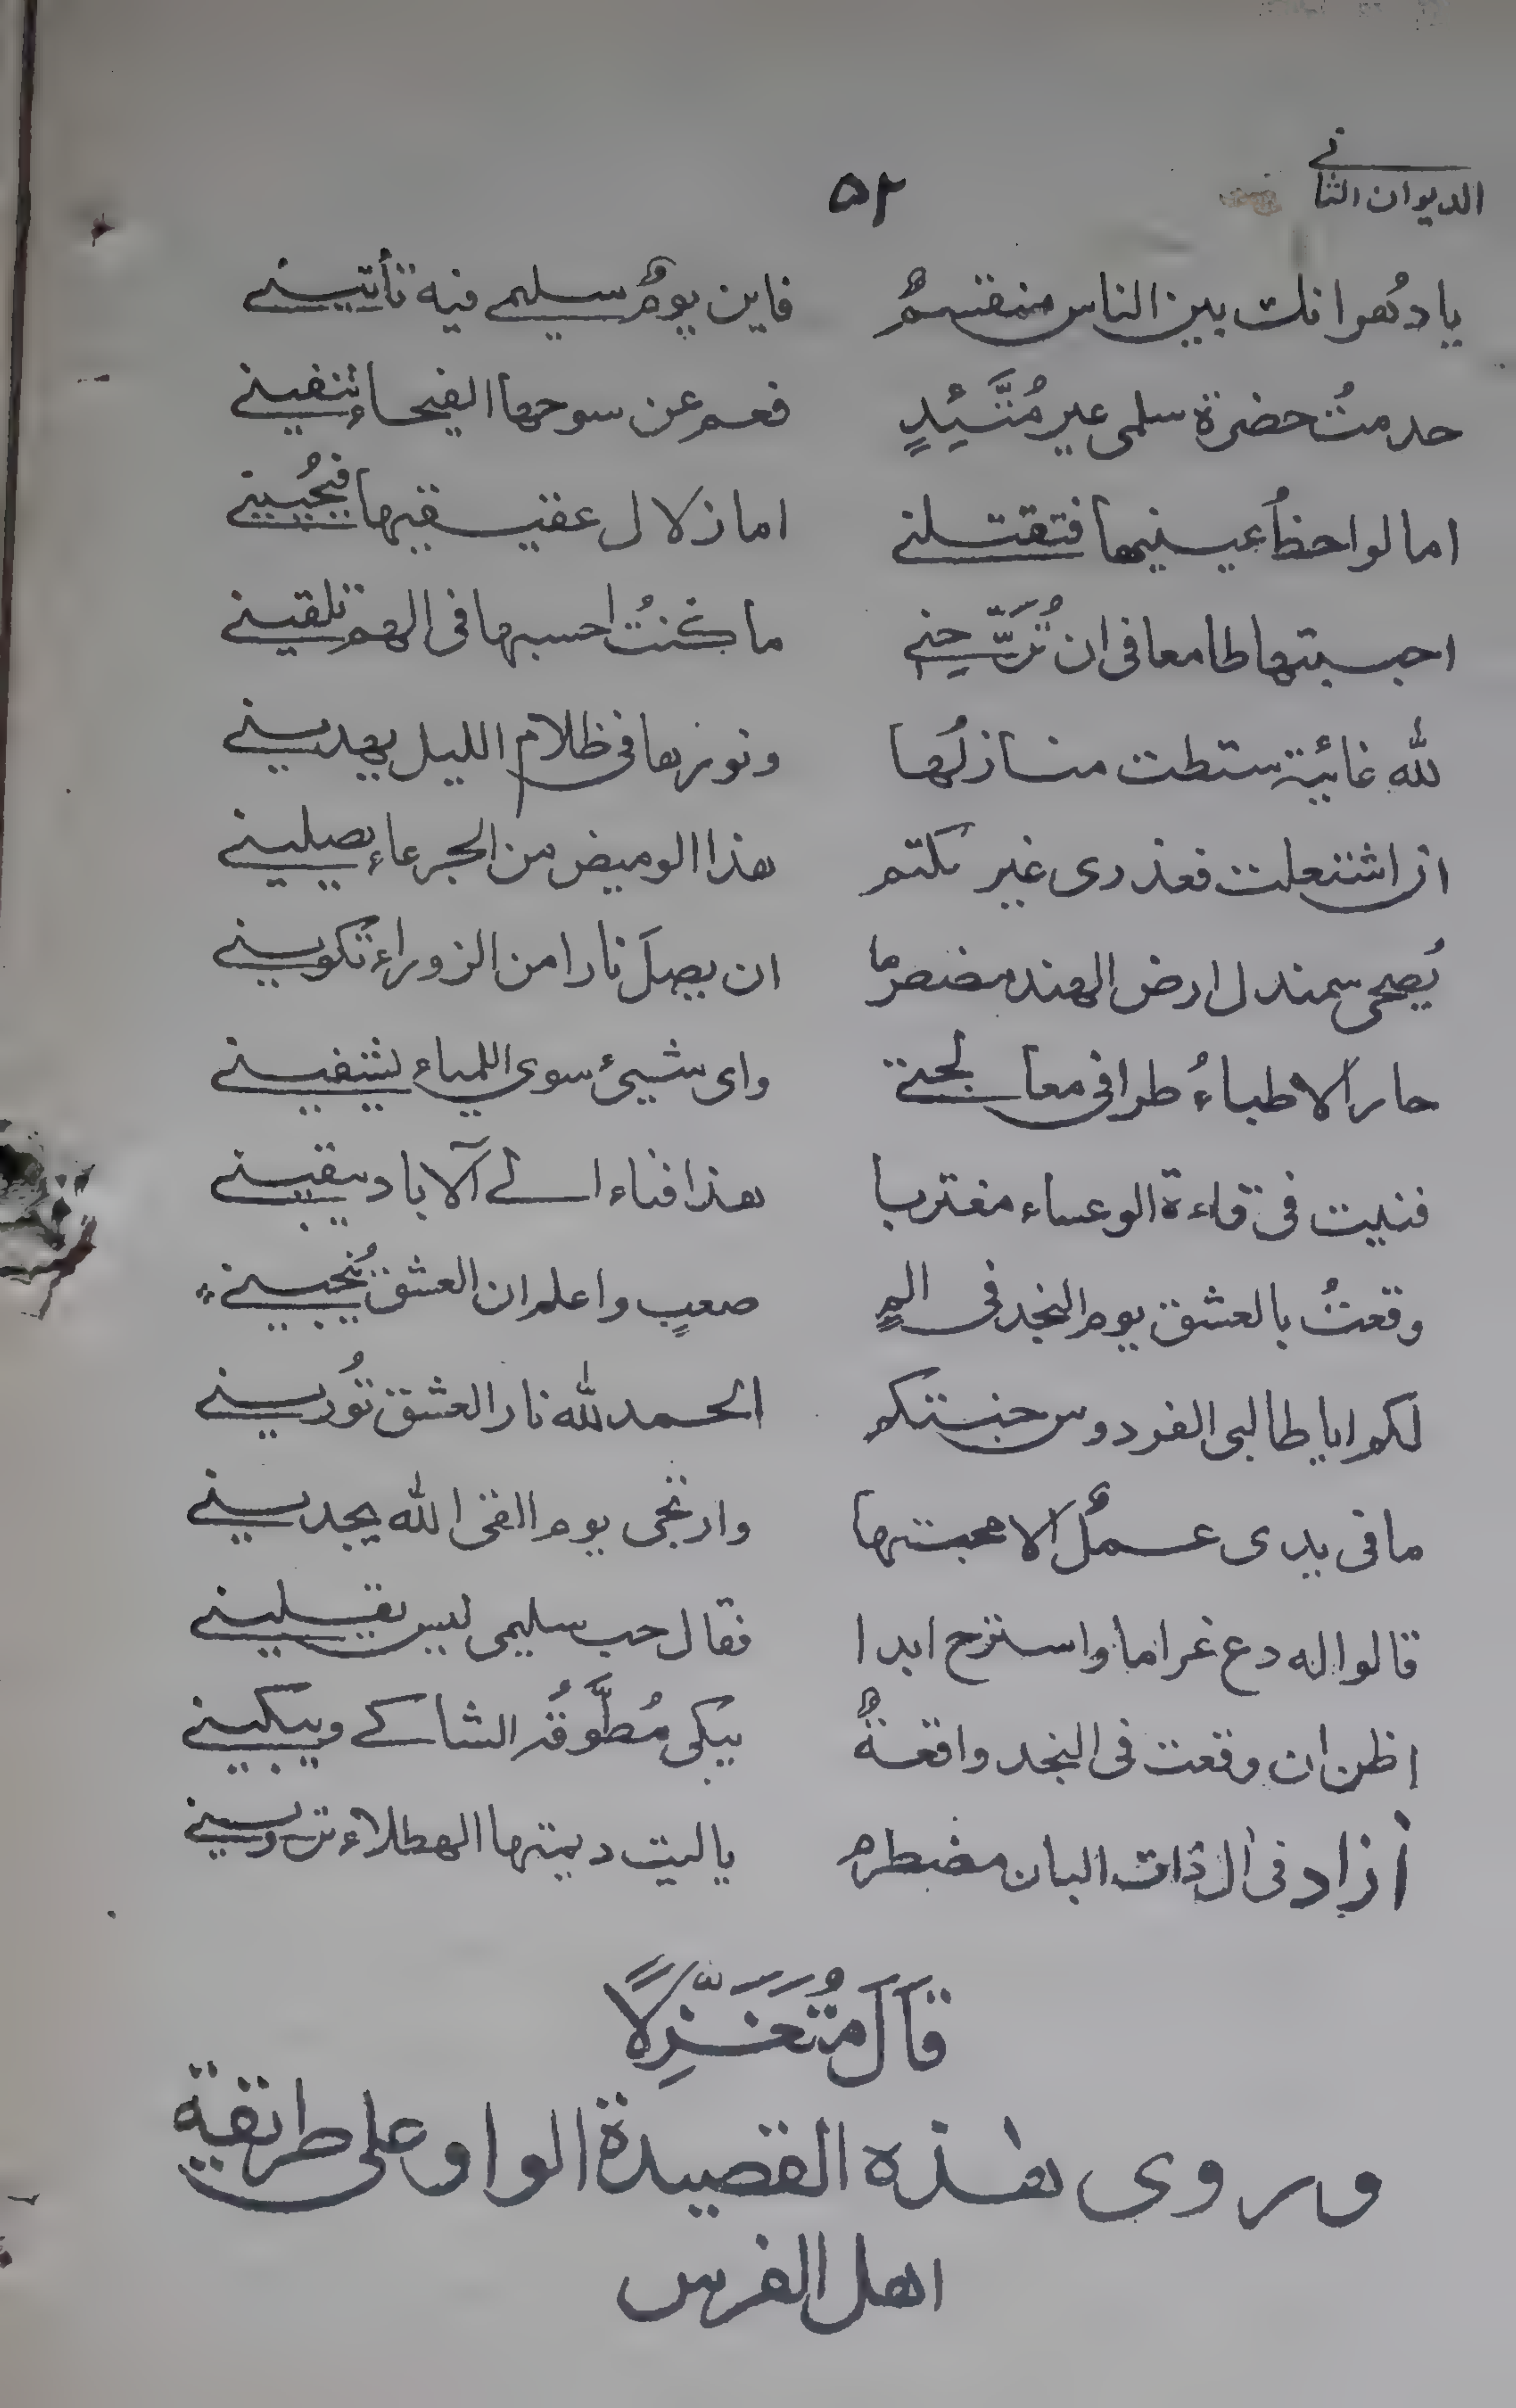 الديوان الثانے
۵۲
يا دهر انك بين الناس منقسمٌ فاين يومٌ سليمے فيه تأتينے
خدمتُ حضرة سلمى غير مُتَّئِدٍ فعم عن سوحها الفيحاء تنفينے
اما لواحظُ عينيها فتقتلنے اما زلال عقيقيها فيحُيينے
احببتها طامعا فى ان تُرَّحِنے ما كنتُ احسبها فى الهم تلقينے
لله غانية شطت منازلُها ونورها فى ظلام الليل يهدينے
ان اشتعلت فعذرى غير مكتم هذا الوميض من الجرعاء يصلينے
يُضحى سمندل ارض الهند مضطرما ان يصلَ نارا من الزوراء تكوينے
حار الاطباءُ طرا فى معالجتے واى شيئ سوى اللمياء يشفينے
فنيت فى قاءة الوعساء مغتربا هذا فناء الے الآباد يبقينے
وقعتُ بالعشق يوم النجد فى المٍ صعبٍ واعلم ان العشق يُنجينے
لكم ايا طالبى الفردوس جنتكم الحمد لله نار العشق تُورينے
ما فى يدى عملٌ الا محبتها وارتجى يوم القى الله يجدينے
قالوا له دع غراما واسترح ابدا فقال حب سليمى ليس يقلينے
اظن ان وقعت فى النجد واقعةٌ يبكى مُطَّوقُه الشاكے ويبكينے
أزاد فى ال ذات البان مضطرم يا ليت ديمتها الهطلاء ترروينے
قَالَ مُتَغَزِّلًا
وروى هذه القصيدة الواو على طريقة
اهل الفرس